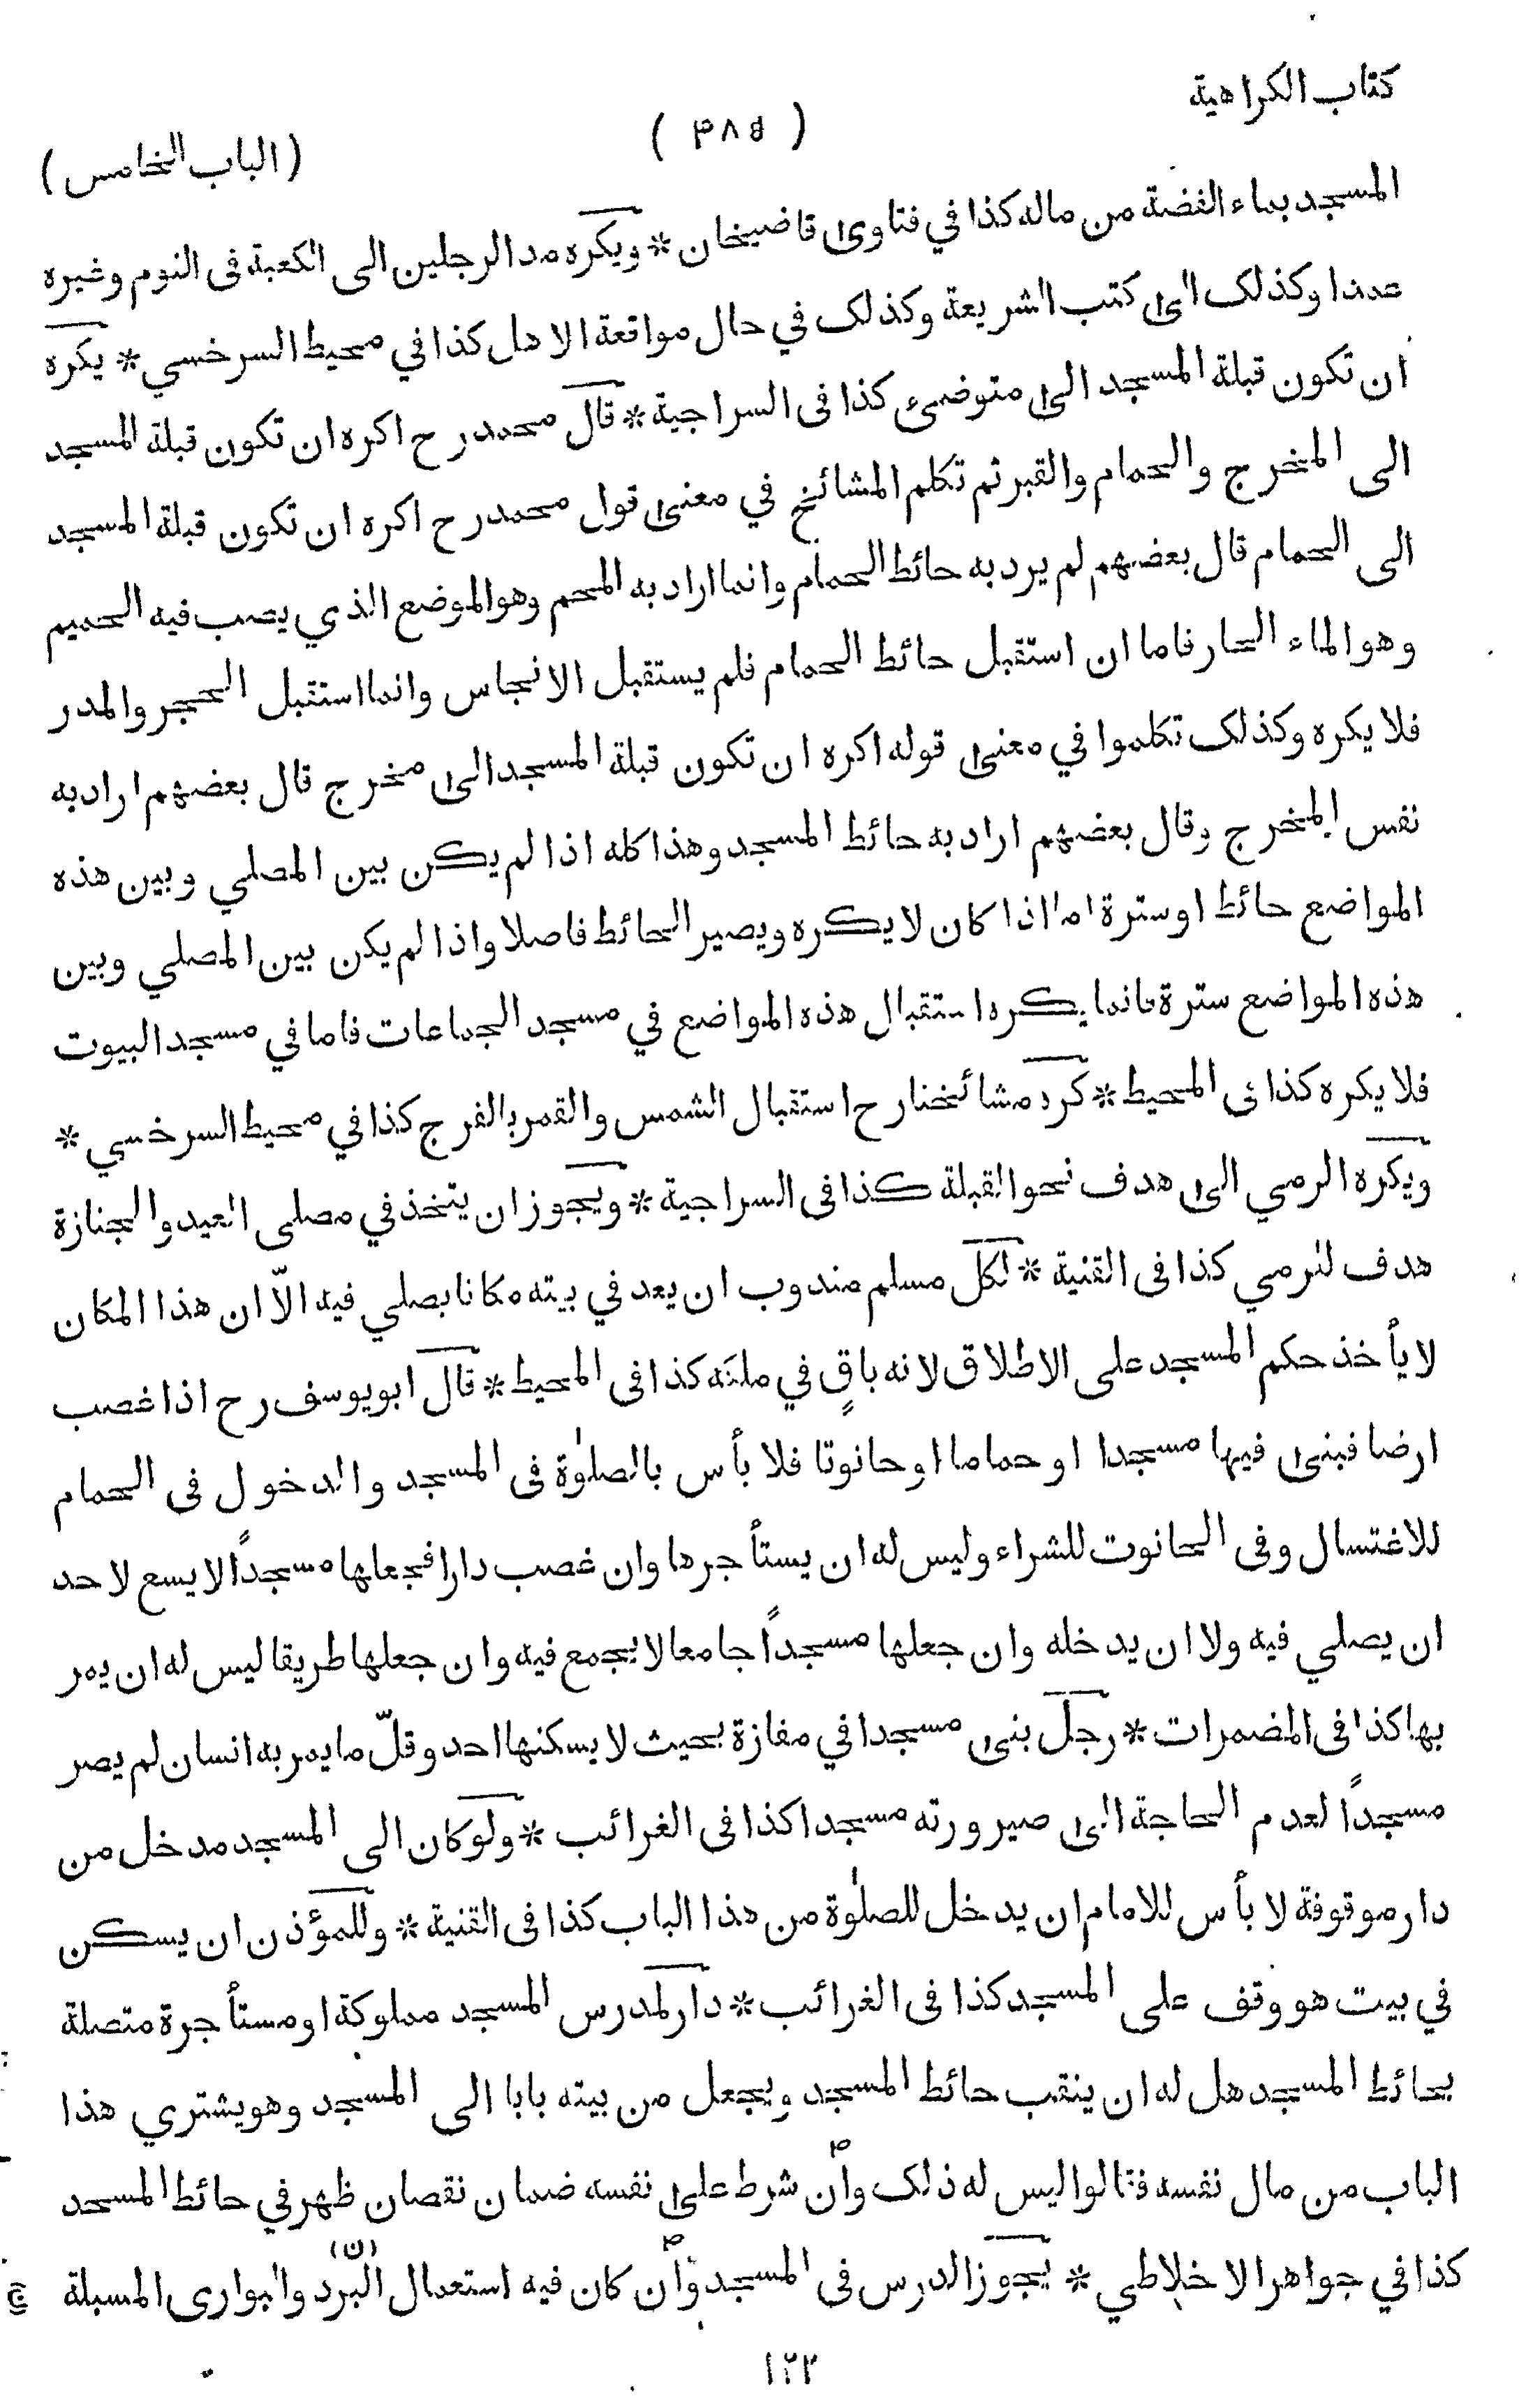 كتاب الكراهية
( ۳۸۵ )
(الباب الخامس)
المسجد بماء الفضة من ماله كذا في فتاوى قاضيخان * ويكره مد الرجلين الى الكعبة فى النوم وغيره
عمدا وكذلك الى كتب الشريعة وكذلك في حال مواقعة الاهل كذا في محيط السرخسي * يكره
ان تكون قبلة المسجد الى متوضىء كذا فى السراجية * قال محمد رح اكره ان تكون قبلة المسجد
الى المخرج والحمام والقبر ثم تكلم المشائخ في معنى قول محمد رح اكره ان تكون قبلة المسجد
الى الحمام قال بعضهم لم يرد به حائط الحمام وانما اراد به المحم وهو الموضع الذي يصب فيه الحميم
وهو الماء الحار فاما ان استقبل حائط الحمام فلم يستقبل الانجاس وانما استقبل الحجر والمدر
فلا يكره وكذلك تكلموا في معنى قوله اكره ان تكون قبلة المسجد الى مخرج قال بعضهم اراد به
نفس المخرج وقال بعضهم اراد به حائط المسجد وهذا كله اذا لم يكن بين المصلي وبين هذه
المواضع حائط او سترة اما اذا كان لا يكره ويصير الحائط فاصلا واذا لم يكن بين المصلي وبين
هذه المواضع سترة فانما يكره استقبال هذه المواضع في مسجد الجماعات فاما في مسجد البيوت
فلا يكره كذا فى المحيط * كره مشائخنا رح استقبال الشمس والقمر بالفرج كذا في محيط السرخسي *
ويكره الرمي الى هدف نحو القبلة كذا فى السراجية * ويجوز ان يتخذ في مصلى العيد والجنازة
هدف للرمي كذا فى القنية * لكل مسلم مندوب ان يعد في بيته مكانا يصلي فيه الّا ان هذا المكان
لا يأخذ حكم المسجد على الاطلاق لانه باقٍ في ملكه كذا فى المحيط * قال ابو يوسف رح اذا غصب
ارضا فبنى فيها مسجدا او حماما او حانوتا فلا بأس بالصلوٰة فى المسجد والدخول فى الحمام
للاغتسال وفى الحانوت للشراء وليس له ان يستأجرها وان غصب دارا فجعلها مسجداً لا يسع لاحد
ان يصلي فيه ولا ان يدخله وان جعلها مسجداً جامعا لا يجمع فيه وان جعلها طريقا ليس له ان يمر
بها كذا فى المضمرات * رجل بنى مسجدا في مفازة بحيث لا يسكنها احد وقلّ ما يمر به انسان لم يصر
مسجداً لعدم الحاجة الى صيرورته مسجدا كذا فى الغرائب * ولو كان الى المسجد مدخل من
دار موقوفة لا بأس للامام ان يدخل للصلوٰة من هذا الباب كذا فى القنية * وللمؤذن ان يسكن
في بيت هو وقف على المسجد كذا فى الغرائب * دار لمدرس المسجد مملوكة او مستأجرة متصلة
بحائط المسجد هل له ان ينقب حائط المسجد ويجعل من بيته بابا الى المسجد وهو يشتري هذا
الباب من مال نفسه فقالوا ليس له ذلك وان شرط على نفسه ضمان نقصان ظهر في حائط المسجد
كذا في جواهر الاخلاطي * يجوز الدرس فى المسجد وان كان فيه استعمال البرد والبوارى المسبلة
(ن)
۱۲۳